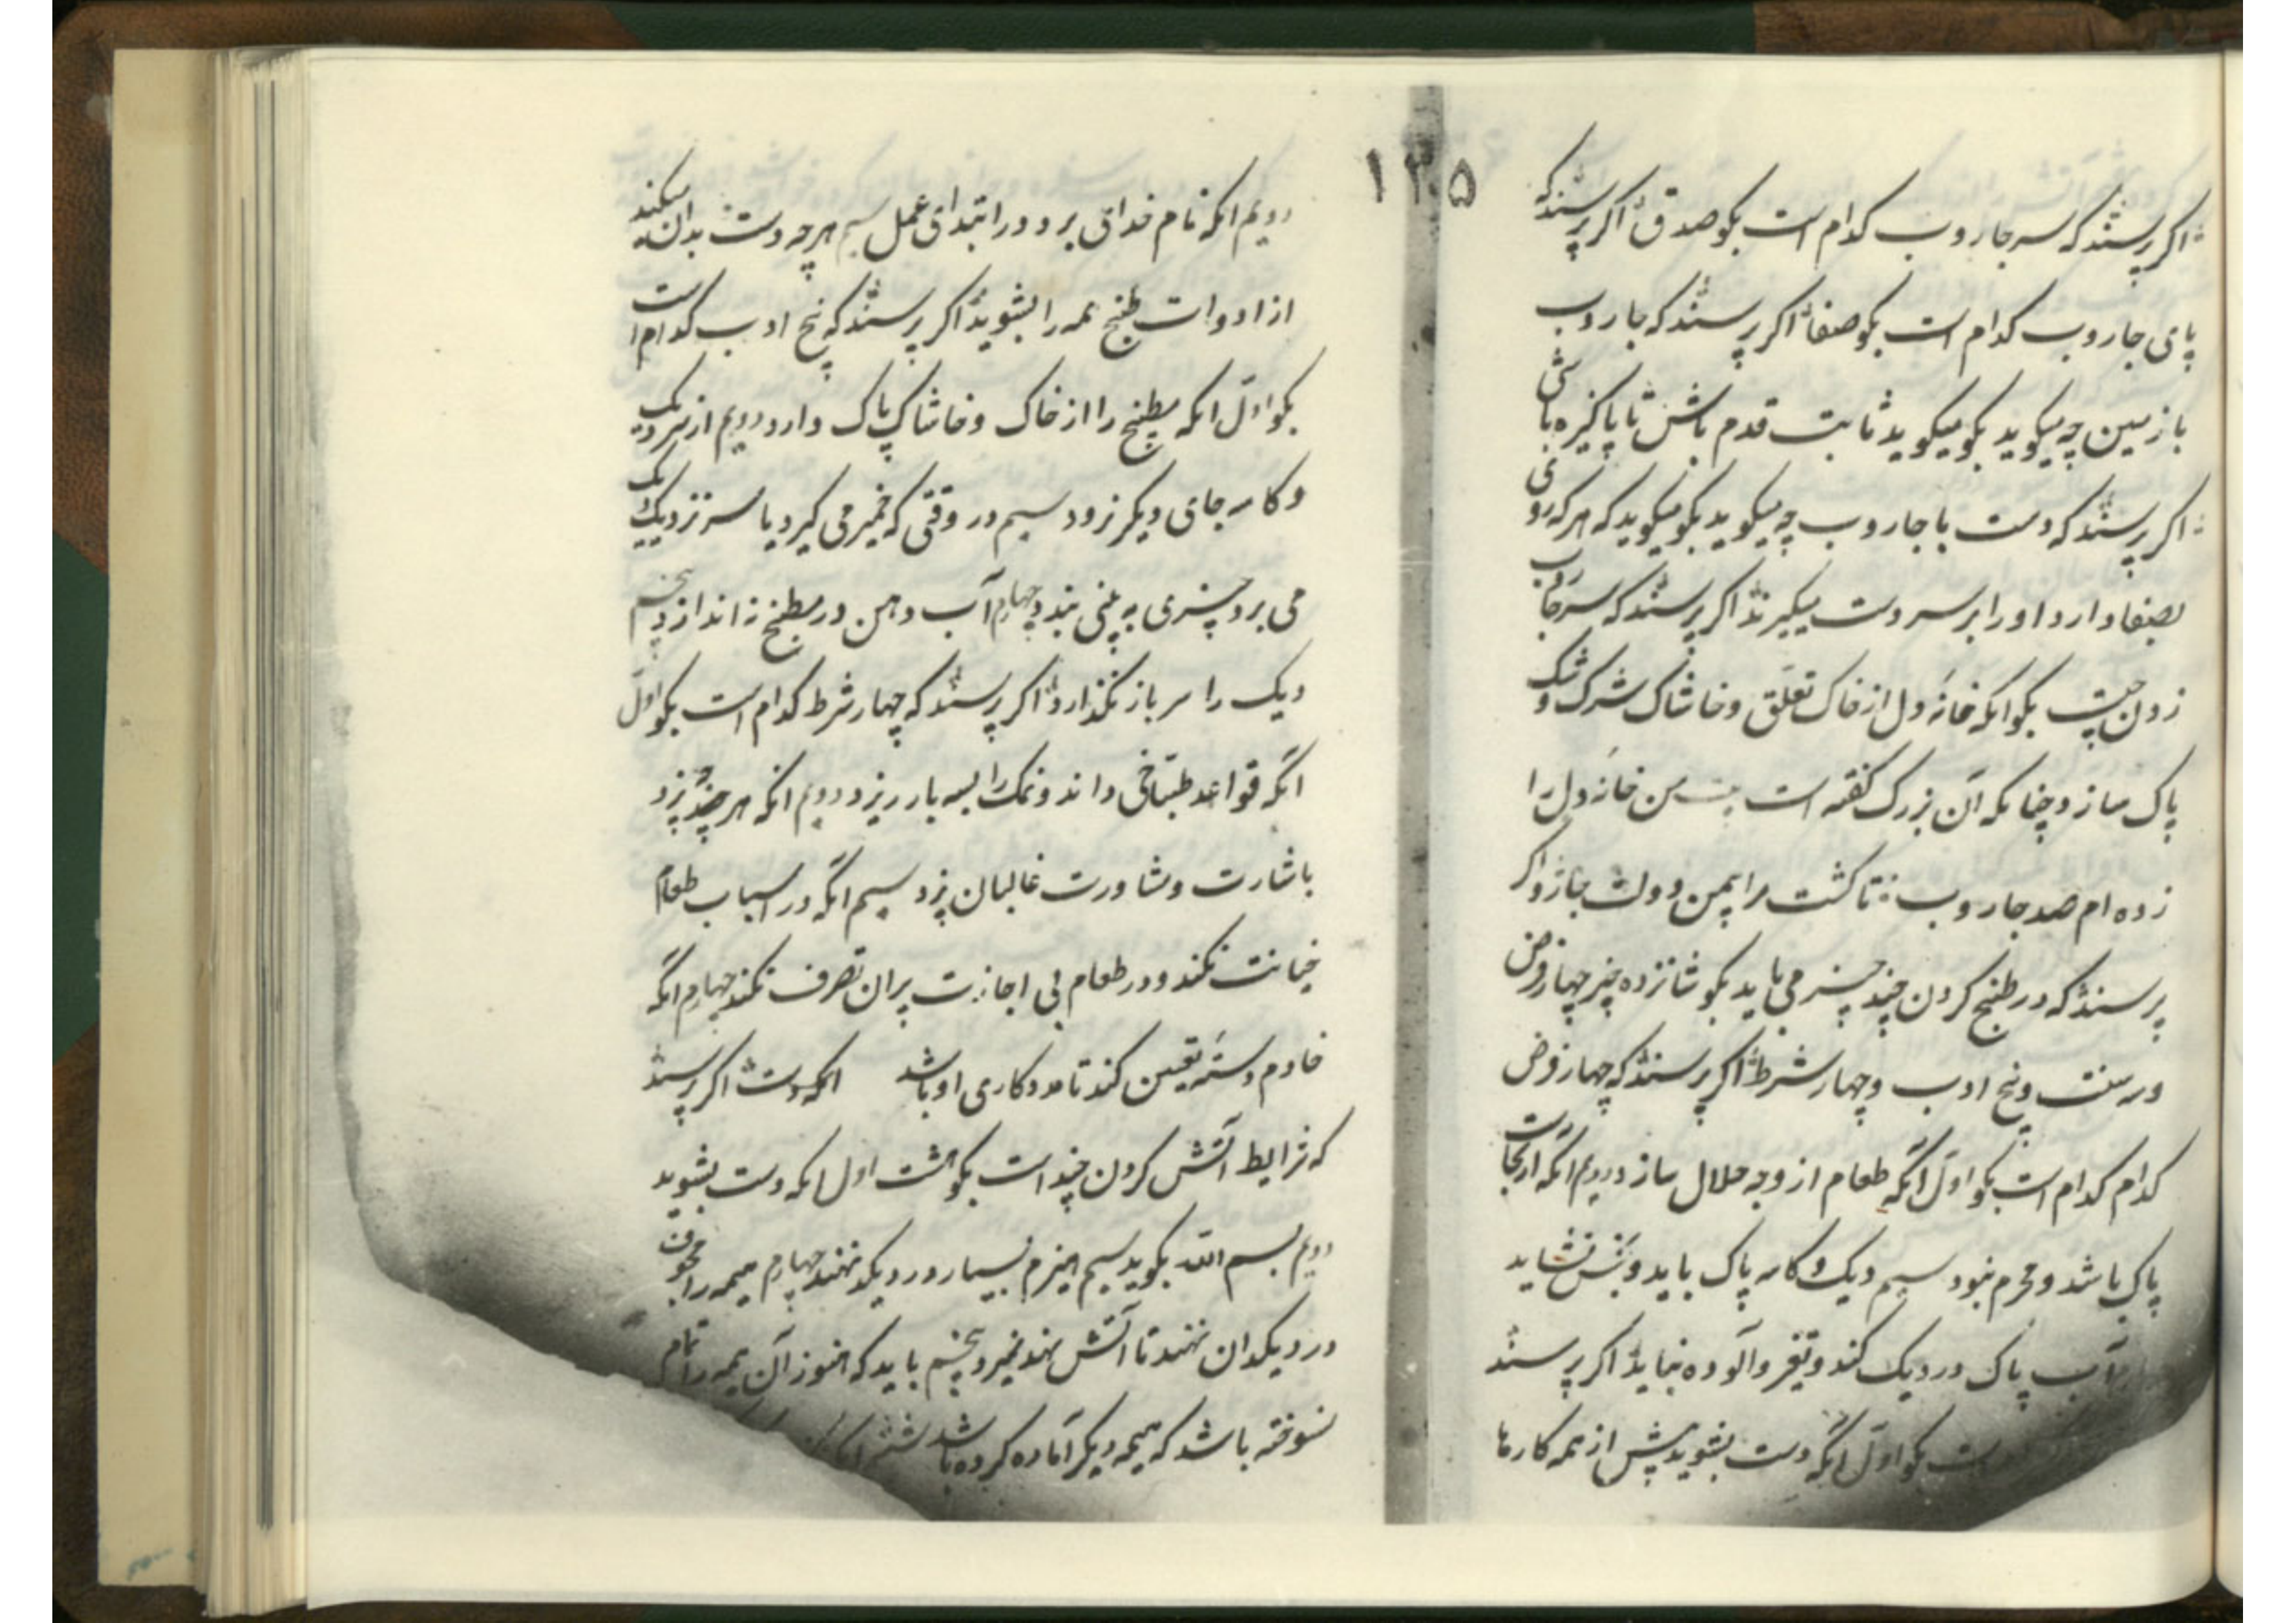 اگر پرسند که سر جاروب کدام است بگو صدق اگر پرسند که
پای جاروب کدام است بگو صفا اگر پرسند که جاروب
با زمین چه میگوید بگو میگوید ثابت قدم باش تا پاکیزه باشی
اگر پرسند که دست با جاروب چه میگوید بگو میگوید که هر که روی
بصفا دارد او را بر سر دست میگیرند اگر پرسند که سر جاروب
زدن چیست بگو انکه خانهٔ دل از خاک تعلّق و خاشاک شرک و شک
پاک سازد چنانکه آن بزرگ گفته است من خانهٔ دل را
زده ام صد جاروب تا گشت مرا اگر
پرسند که در طبخ کردن چند چیز می باید بگو شانزده چیز چهار فرض
و سه سنت و پنج ادب و چهار شرط اگر پرسند که چهار فرض
کدام کدام است بگو اوّل آنکه طعام از وجه حلال سازد دویم آنکه از نجاست
پاک باشد و محرم نبود سیم دیک و کاسه پاک باید و نجس نشاید
آب پاک در دیک کند و تغیر و آلوده نباید اگر پرسند
بگو اوّل آنکه دست بشوید پیش از همه کارها
۱۳۵
دویم انکه نام خدای برد در ابتدای عمل سیم هر چه دست بدان میکند
از ادوات طبخ همه را بشوید اگر پرسند که پنج ادب کدام است
بگو اوّل انکه مطبخ را از خاک و خاشاک پاک دارد دویم از سر دیک
و کاسه جای دیگر نرود سیم در وقتی که خمیر می گیرد یا سر نزدیک دیک
می برد چیزی به بینی بندد چهارم آب دهن در مطبخ نه اندازد پنجم
دیک را سر باز نگذارد اگر پرسند که چهار شرط کدام است بگو اوّل
انکه قواعد طبّاخی داند و نمک را بسه بار ریزد دویم انکه هر چه پزد
باشارت و مشاورت غالبان پزد سیم انکه در اسباب طعام
خیانت نکند و در طعام بی اجازت پیران تصرف نکند چهارم انکه
خادم دسته تعین کند تا مددکاری او باشد اگر پرسند
که شرایط آتش کردن چند است بگو هشت اول انکه دست بشوید
دویم بسم الله بگوید سیم هیزم بسیار در دیگدان ننهد چهارم هیمه را
در دیکدان ننهد تا آتش بنمیرد پنجم باید که هنوز آن هیمه را تمام
نسوخته باشد که هیمه دیگر آماده کرده باشد ششم